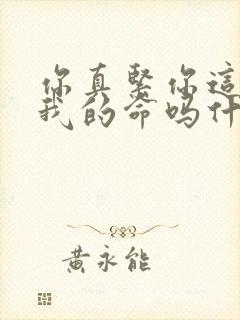 你真紧你這
我的命吗什
黄永能